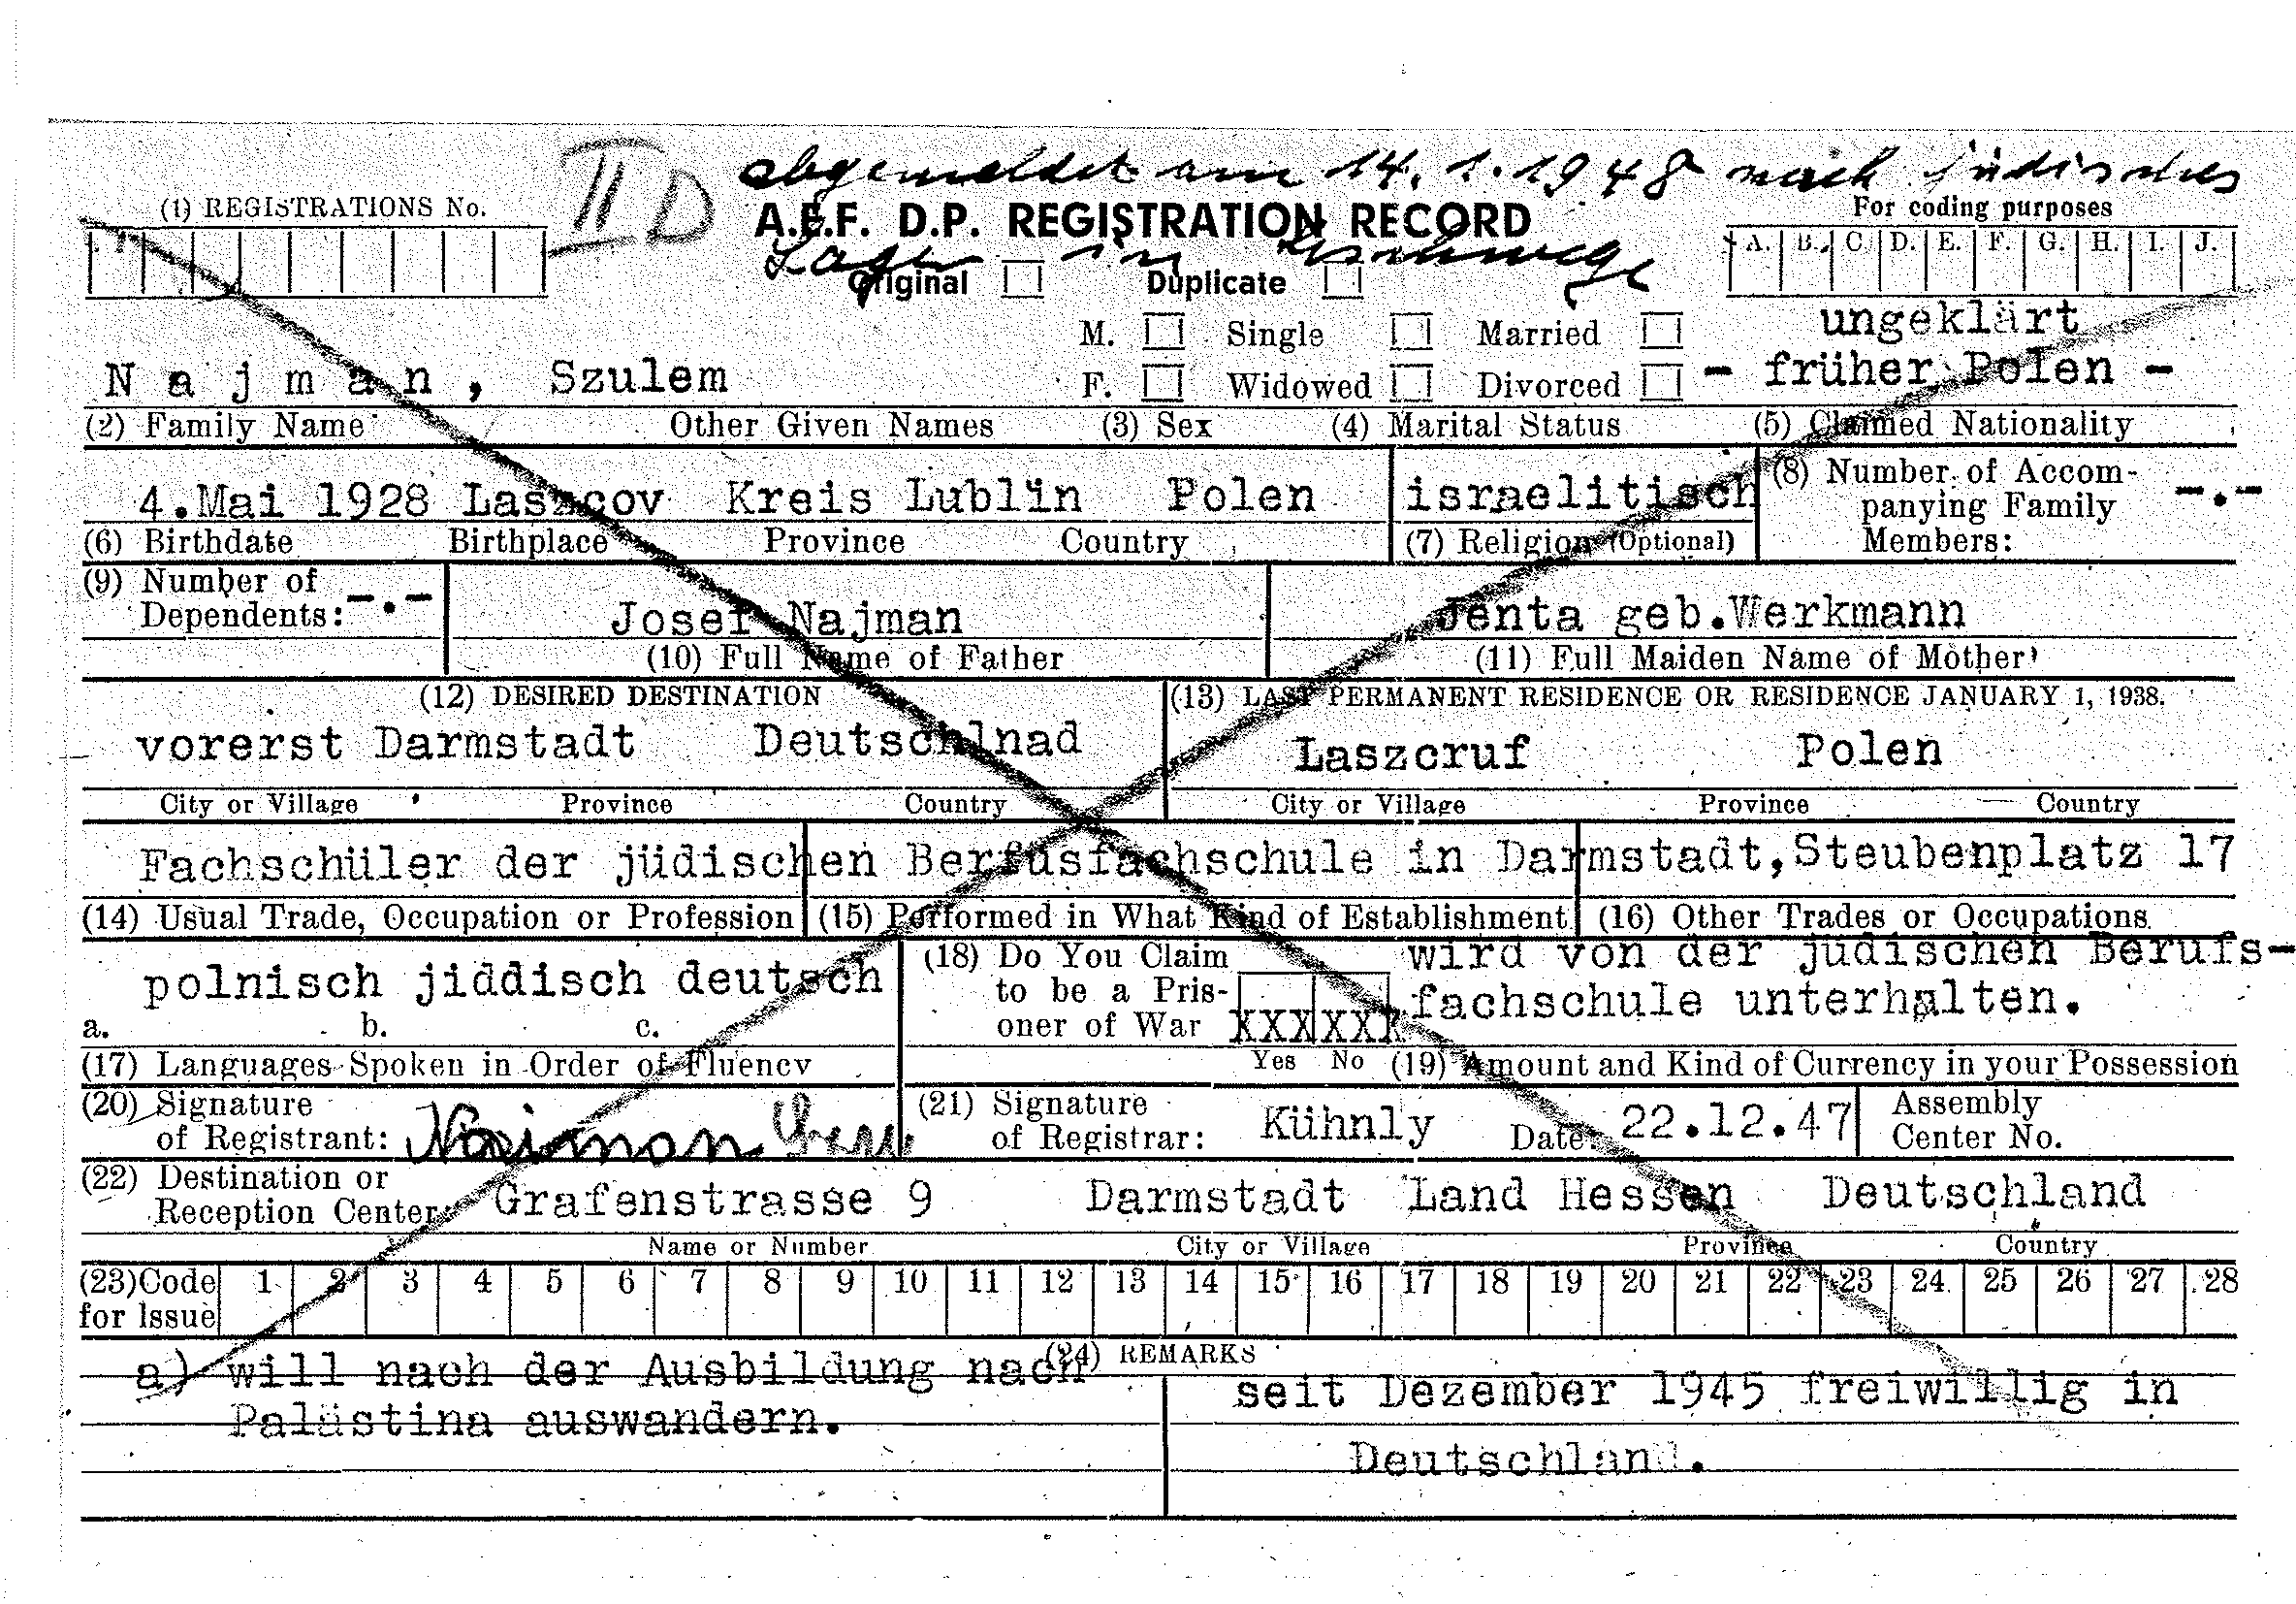 II D
abgemeldet am 14.1.1948 nach jüdisches
(1) REGISTRATIONS No.
A.E.F. D.P. REGISTRATION RECORD
For coding purposes
Lager in Eschwege
Original Duplicate
A. B. C. D. E. F. G. H. I. J.
M. Single Married
ungeklärt
Najman, Szulem
F. Widowed Divorced
- früher Polen -
(2) Family Name Other Given Names (3) Sex (4) Marital Status (5) Claimed Nationality
4.Mai 1928 Laszcov Kreis Lublin Polen israelitisch
(8) Number of Accom-
panying Family
Members: -.-
(6) Birthdate Birthplace Province Country (7) Religion (Optional)
(9) Number of
Dependents: -.-
Josef Najman Jenta geb.Werkmann
(10) Full Name of Father (11) Full Maiden Name of Mother
(12) DESIRED DESTINATION (13) LAST PERMANENT RESIDENCE OR RESIDENCE JANUARY 1, 1938.
vorerst Darmstadt Deutschlnad Laszcruf Polen
City or Village Province Country City or Village Province Country
Fachschüler der jüdischen Berfusfachschule in Darmstadt,Steubenplatz 17
(14) Usual Trade, Occupation or Profession (15) Performed in What Kind of Establishment (16) Other Trades or Occupations
polnisch jiddisch deutsch
a. b. c.
(18) Do You Claim
to be a Pris-
oner of War XXX XXX
wird von der jüdischen Berufs-
fachschule unterhalten.
(17) Languages Spoken in Order of Fluency Yes No (19) Amount and Kind of Currency in your Possession
(20) Signature
of Registrant: Naiman
(21) Signature
of Registrar: Kühnly Date: 22.12.47
Assembly
Center No.
(22) Destination or
Reception Center: Grafenstrasse 9 Darmstadt Land Hessen Deutschland
Name or Number City or Village Province Country
(23)Code
for Issue
1 2 3 4 5 6 7 8 9 10 11 12 13 14 15 16 17 18 19 20 21 22 23 24 25 26 27 28
(24) REMARKS
a) will nach der Ausbildung nach
Palästina auswandern.
seit Dezember 1945 freiwillig in
Deutschland.